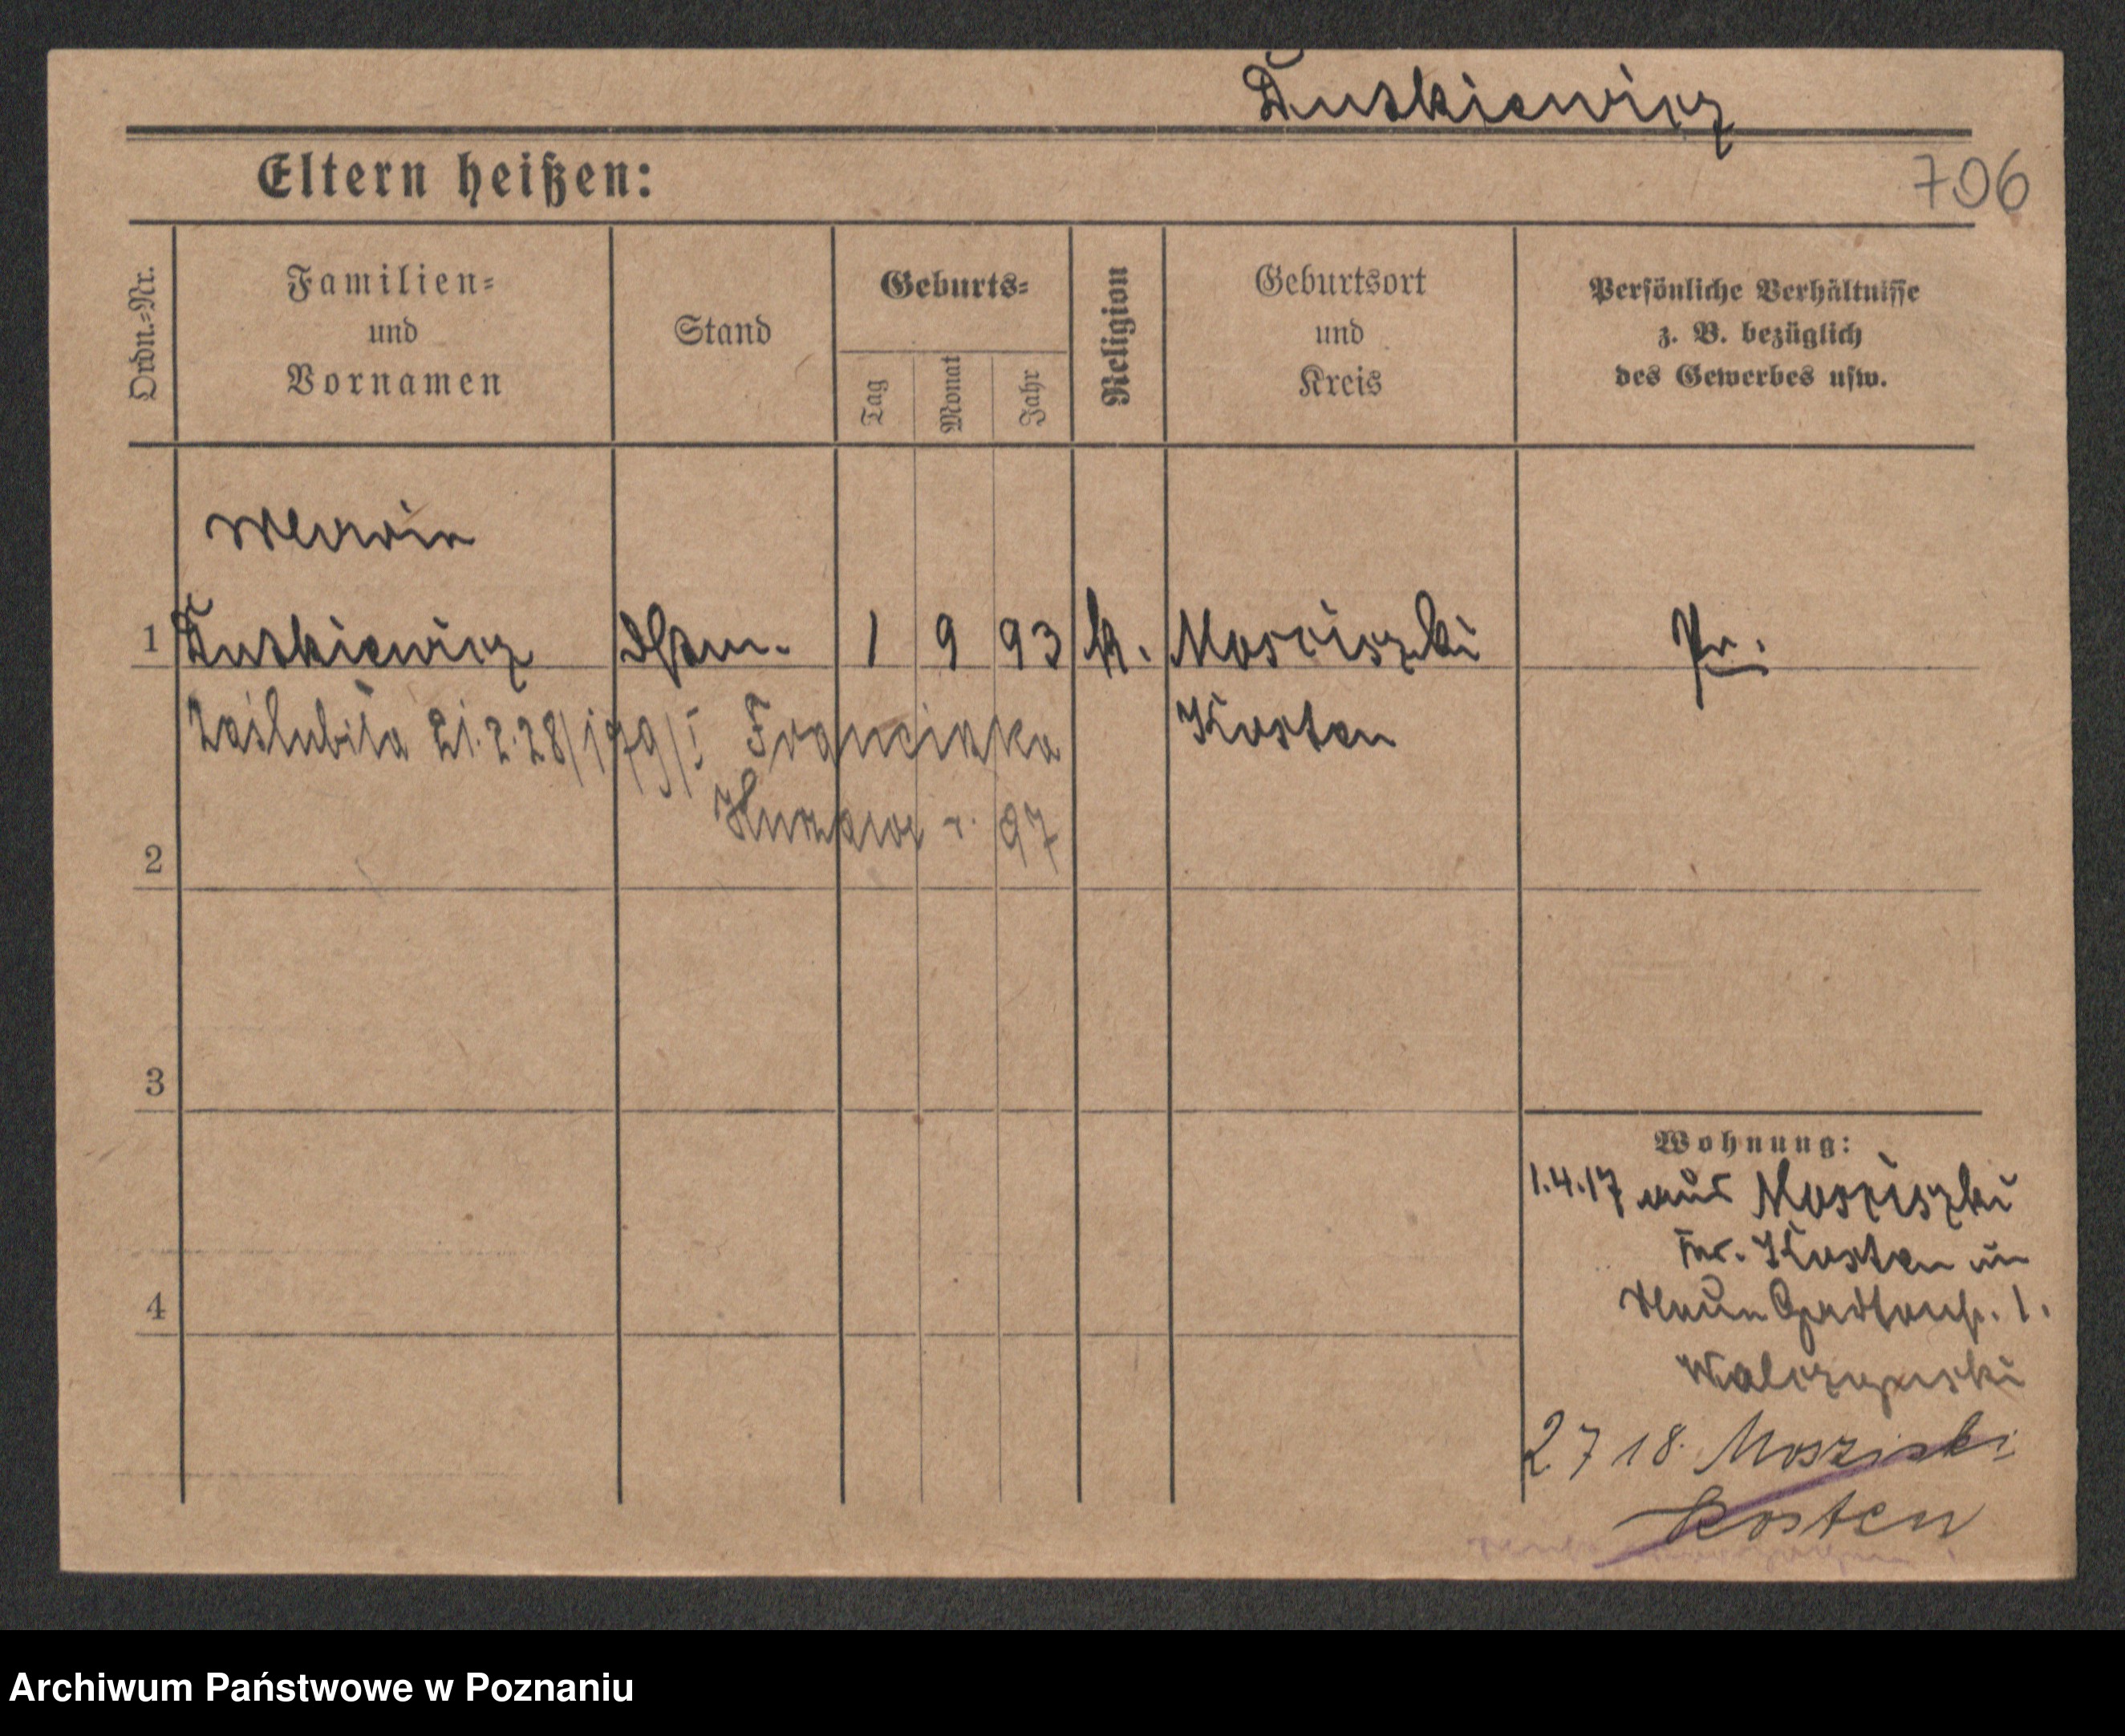 Duskiewicz
Eltern heißen:
706
Ordn.=Nr.
Familien=
und
Vornamen
Stand
Geburts=
Tag
Monat
Jahr
Religion
Geburtsort
und
Kreis
Persönliche Verhältnisse
z. B. bezüglich
des Gewerbes usw.
1
Duskiewicz
1
9
93
k.
Mosciszki
Pr.
Kosten
zaślubiła 21.2.28/179/I Franciszka
r. 97
2
3
4
Wohnung:
1.4.17 aus Mosciszki
Kr. Kosten in
1.
2 7 18. Mosziski
Kosten
Archiwum Państwowe w Poznaniu